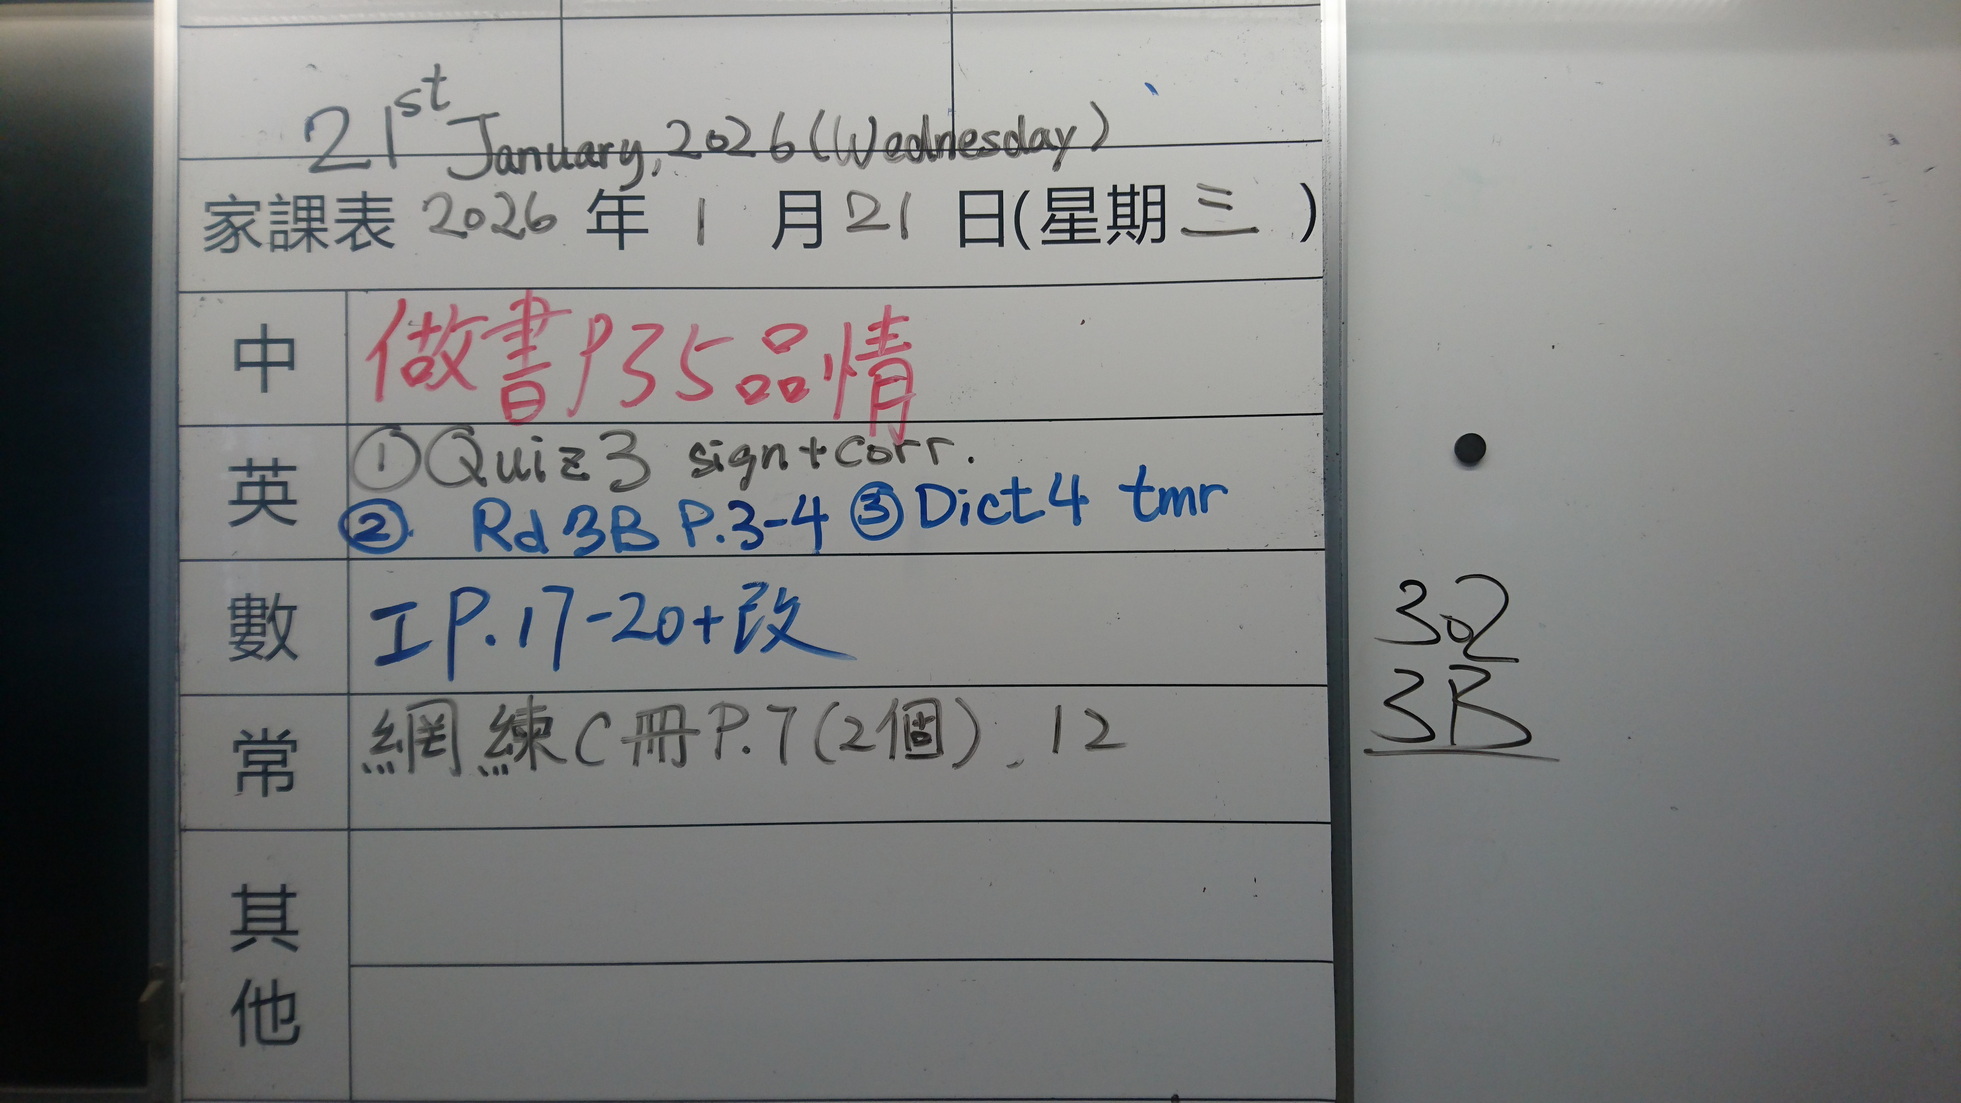 21st January, 2026 (Wednesday)
家課表 2026 年 1 月 21 日(星期三)
中 做書P35品情
英 ①Quiz 3 sign+corr.
② Rd 3B P.3-4 ③Dict 4 tmr
數 工P.17-20+改
常 網練C冊P.7(2個)、12
其他
302
3B